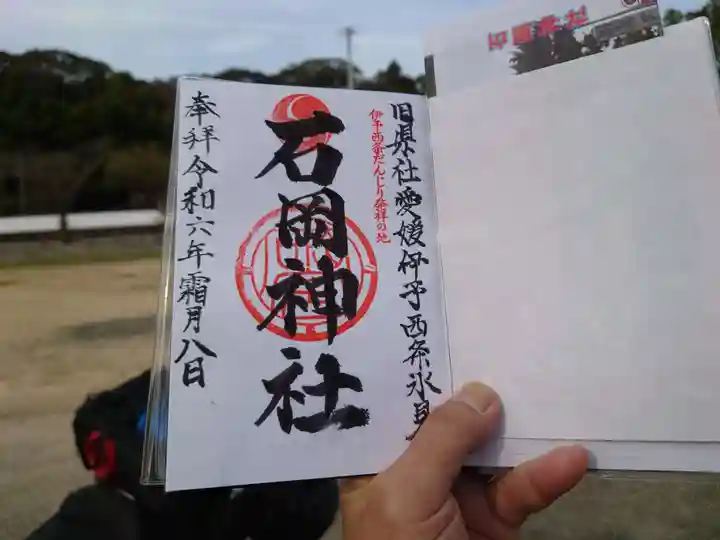 旧県社愛媛伊予西条氷見
伊予西条だんじり発祥の地
石岡神社
奉拝令和六年霜月八日